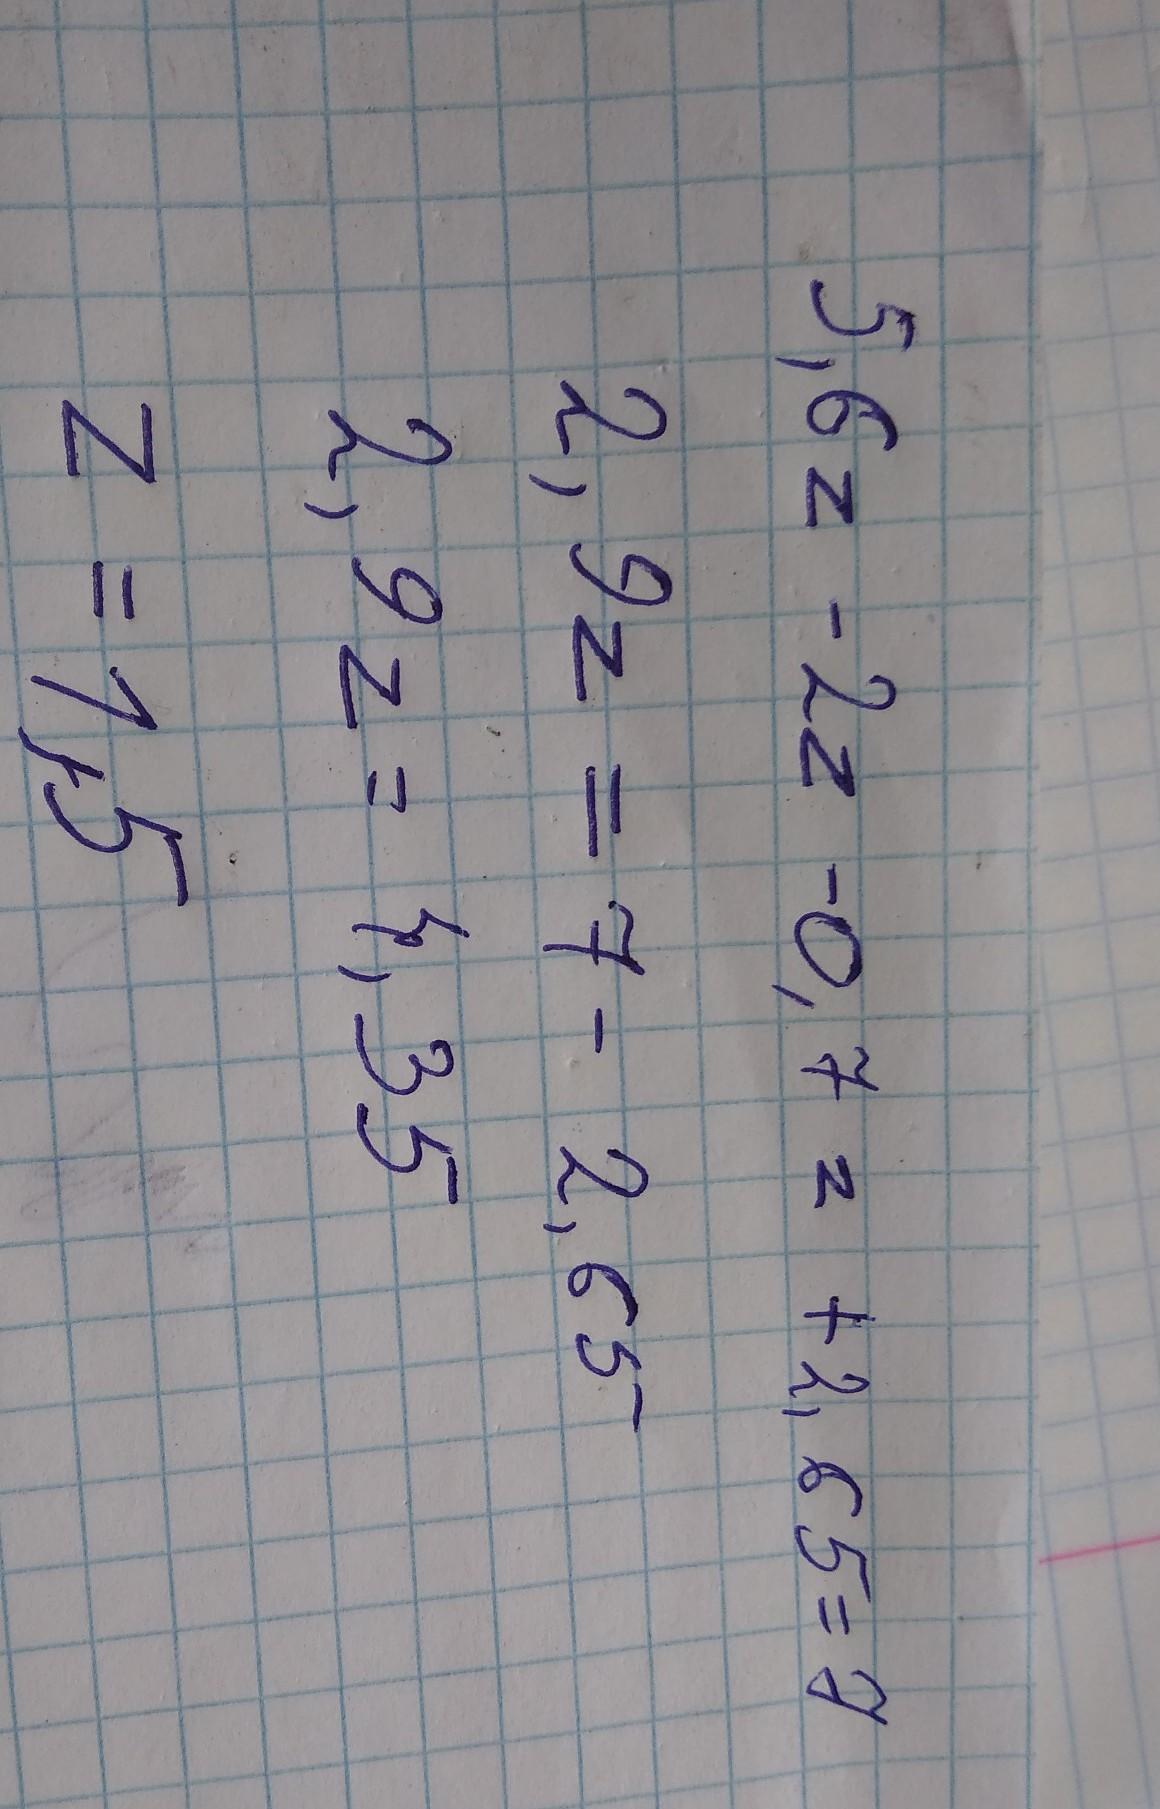 5,6z - 2z - 0,7z + 2,65 = 7
2,9z = 7 - 2,65
2,9z = 4,35
z = 1,5